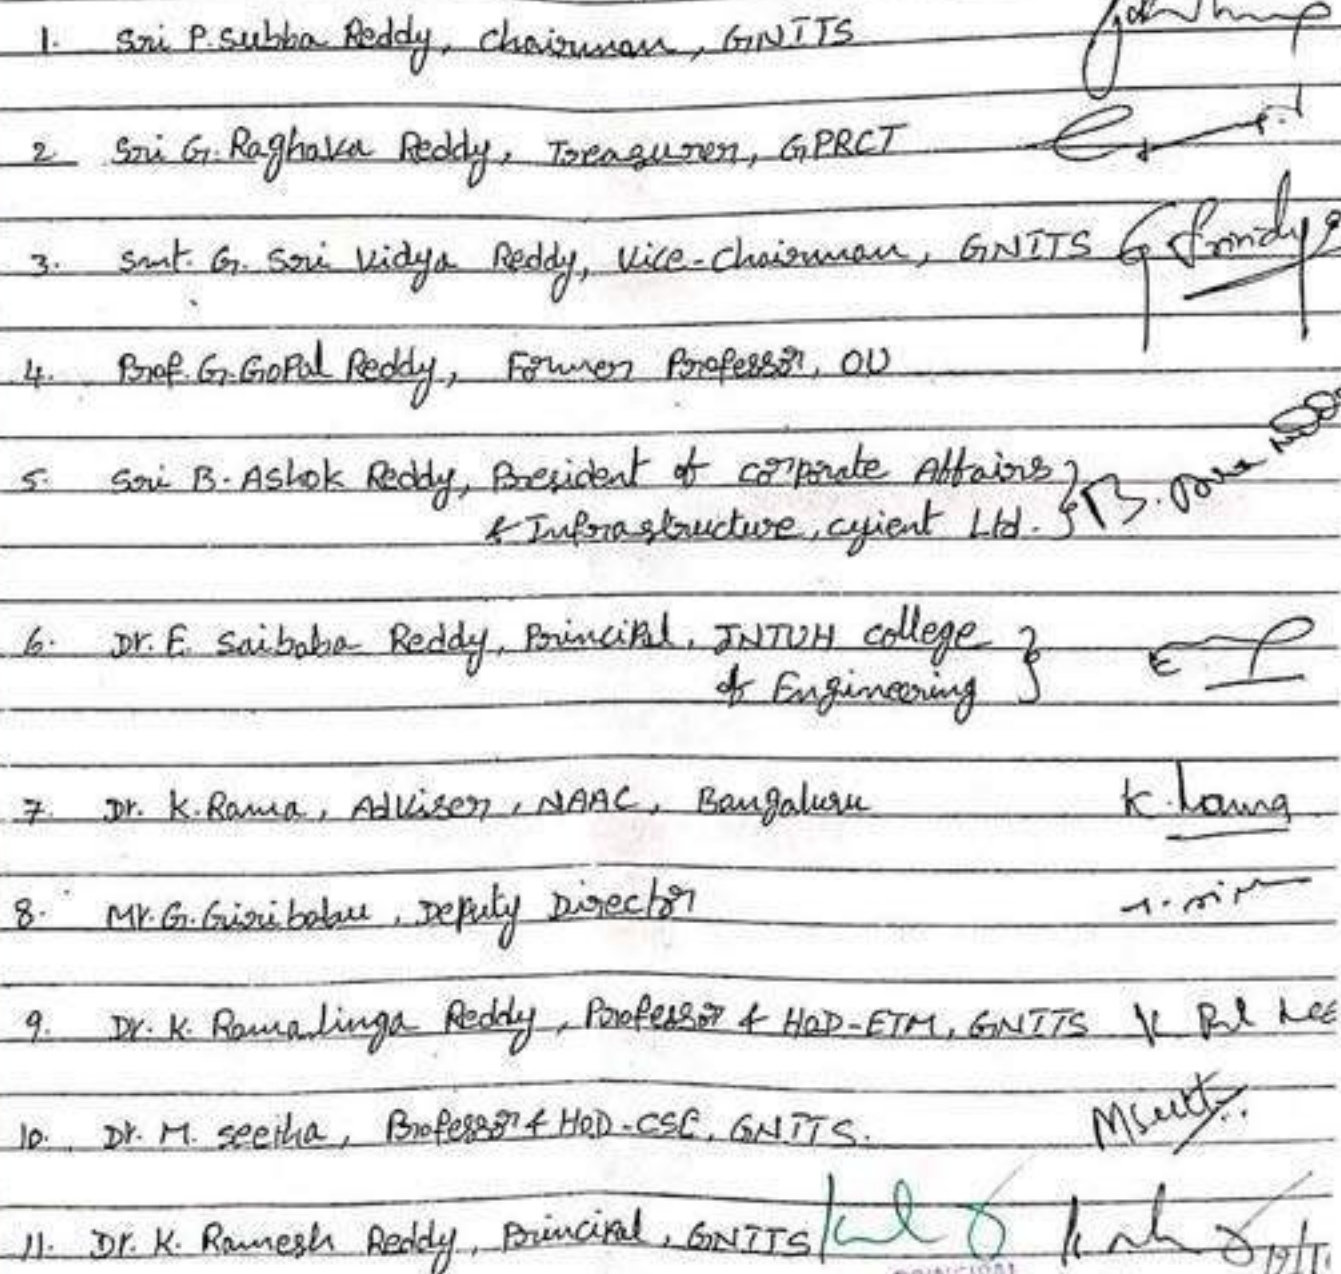 1. Sri P. Subba Reddy, Chairman, GNITS
2 Sri G. Raghava Reddy, Treasurer, GPRCT
3. Smt. G. Sri Vidya Reddy, Vice-Chairman, GNITS
4. Prof. G. Gopal Reddy, Former Professor, OU
5. Sri B. Ashok Reddy, President of Corporate Affairs
& Infrastructure, cyient Ltd.
6. Dr. E. Saibaba Reddy, Principal, JNTUH College
of Engineering
7. Dr. K. Rama, Adviser, NAAC, Bangaluru K. Rama
8. Mr. G. Giribabu, Deputy Director
9. Dr. K. Ramalinga Reddy, Professor & HOD-ETM, GNITS
10. Dr. M. Seetha, Professor & HOD-CSE, GNITS.
11. Dr. K. Ramesh Reddy, Principal, GNITS
PRINCIPAL